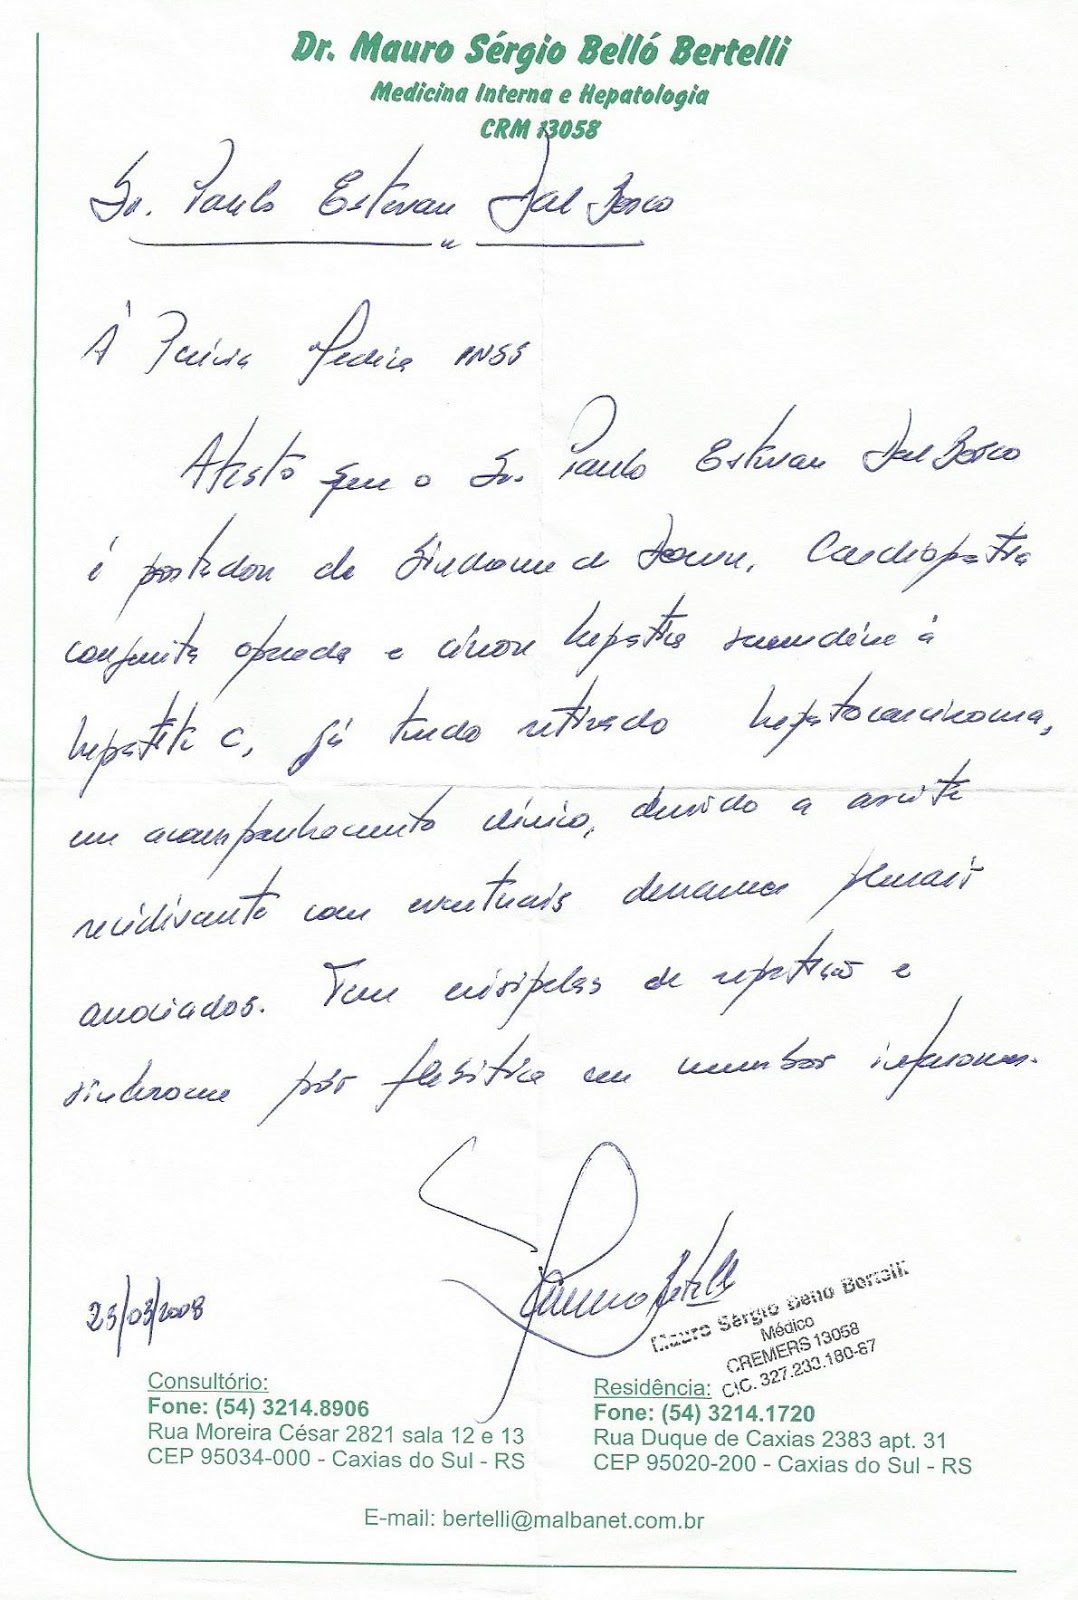 Dr. Mauro Sérgio Belló Bertelli
Medicina Interna e Hepatologia
CRM 13058
Sr. Paulo Estevan Dal Bosco
À Perícia Médica INSS
Atesto que o Sr. Paulo Estevan Dal Bosco
é portador de Síndrome de Down, Cardiopatia
congenita operada e cirrose hepática secundária à
hepatite C, já tendo retirado hepatocarcinoma,
em acompanhamento clínico, devido a ascite
recidivante com eventuais derrames pleurais
associados. Tem erisipelas de repetição e
síndrome pós flebítica em membros inferiores.
Mauro Bertelli
Mauro Sérgio Belló Bertelli
Médico
CREMERS 13058
CIC. 327.233.180-87
25/03/2008
Consultório:
Fone: (54) 3214.8906
Rua Moreira César 2821 sala 12 e 13
CEP 95034-000 - Caxias do Sul - RS
Residência:
Fone: (54) 3214.1720
Rua Duque de Caxias 2383 apt. 31
CEP 95020-200 - Caxias do Sul - RS
E-mail: bertelli@malbanet.com.br